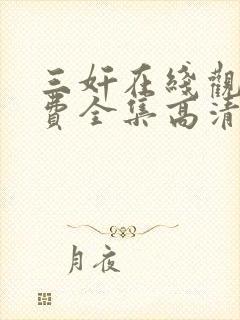 三奸在綫觀
費全集高清
月夜